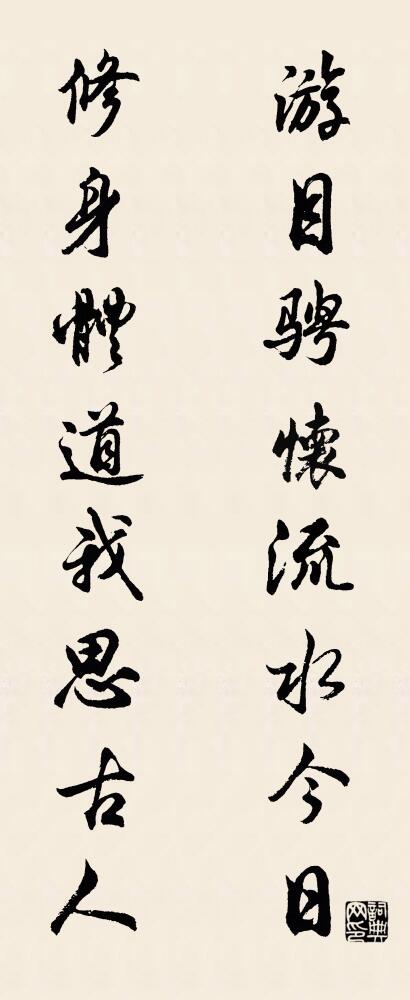 游目骋懷流水今日
修身體道我思古人
詞典网印